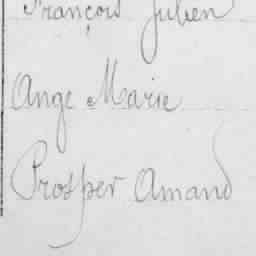 François Julien
Ange Marie
Prosper Amand